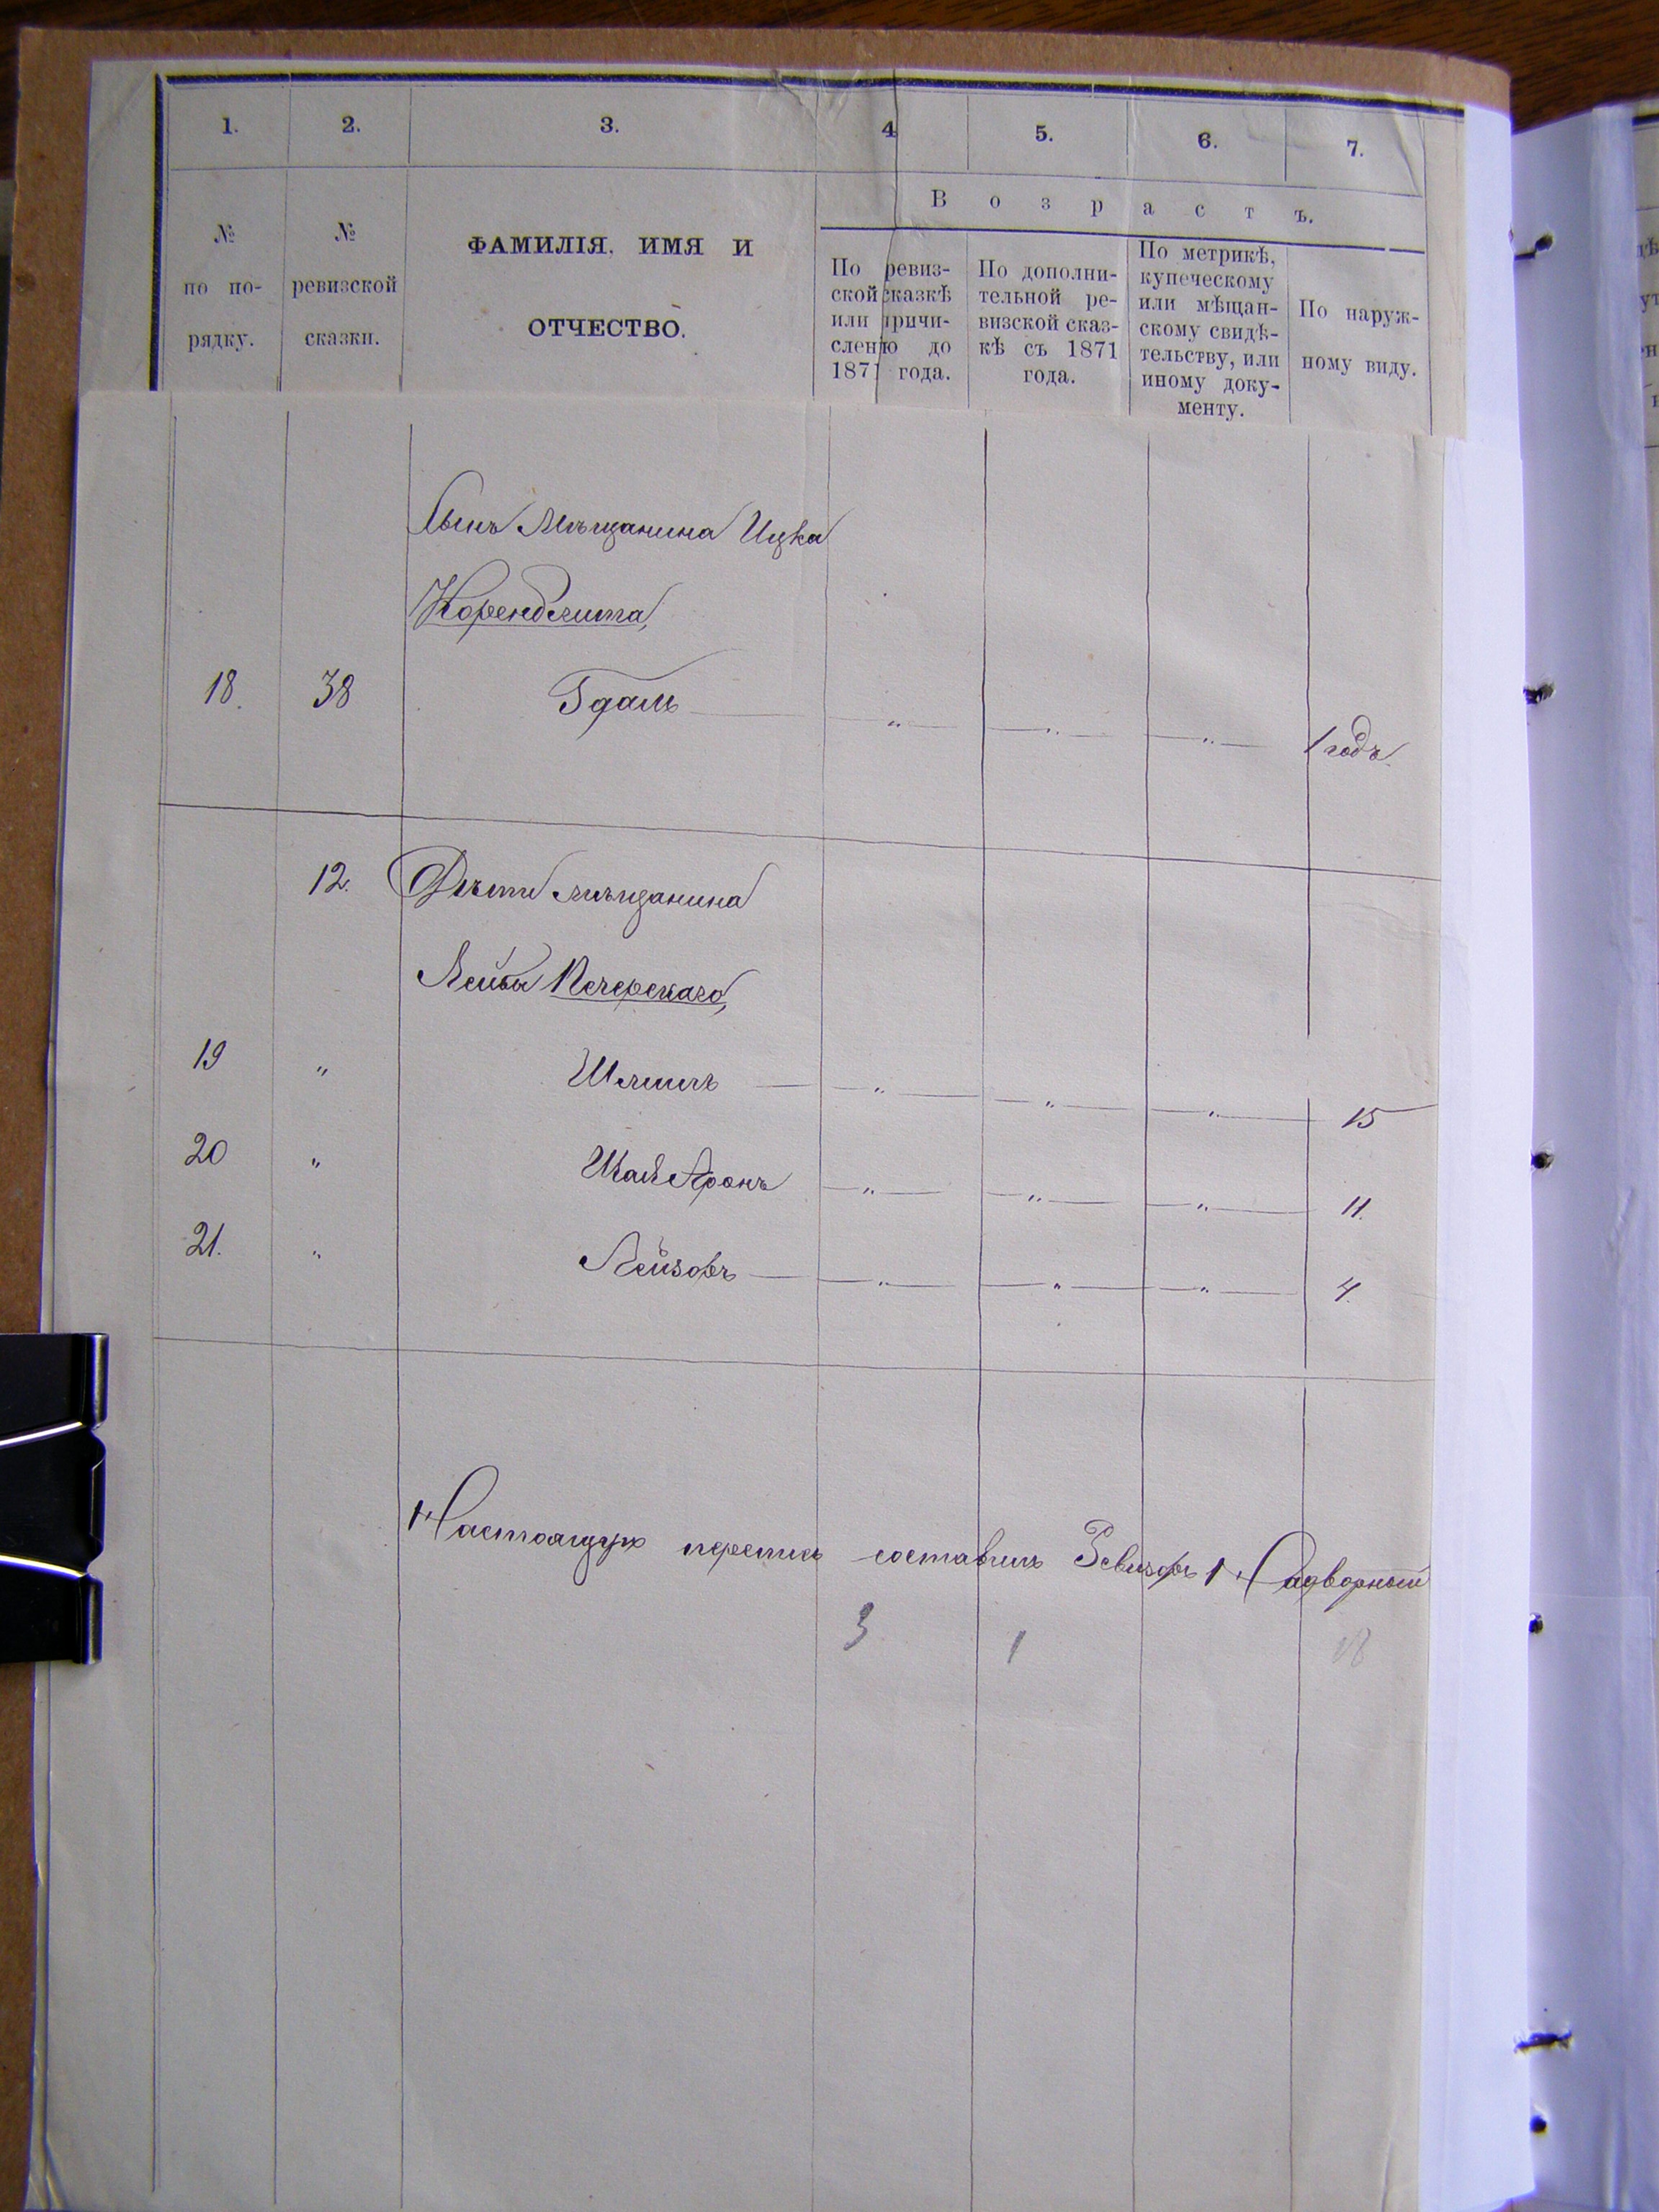 1. 2. 3. 4 5. 6. 7.
Возрастъ.
№ по по-рядку.
№ ревизской сказки.
ФАМИЛІЯ, ИМЯ И
ОТЧЕСТВО.
По ревиз-
ской сказкѣ
или причи-
сленію до
1871 года.
По дополни-
тельной ре-
визской сказ-
кѣ съ 1871
года.
По метрикѣ,
купеческому
или мѣщан-
скому свидѣ-
тельству, или
иному доку-
менту.
По наруж-
ному виду.
Сынъ Мѣщанина Ицка
18. 38 Гдаль — " — " — " — 1 годъ.
12. Дѣти мѣщанина
Лейбы Печерскаго,
19 " — " — " — " — 15
20 " Шая Аронъ — " — " — " — 11.
21. " Лейзоръ — " — " — " — 4.
Настоящую перепись составилъ Ревизоръ Надворный
3 1 18